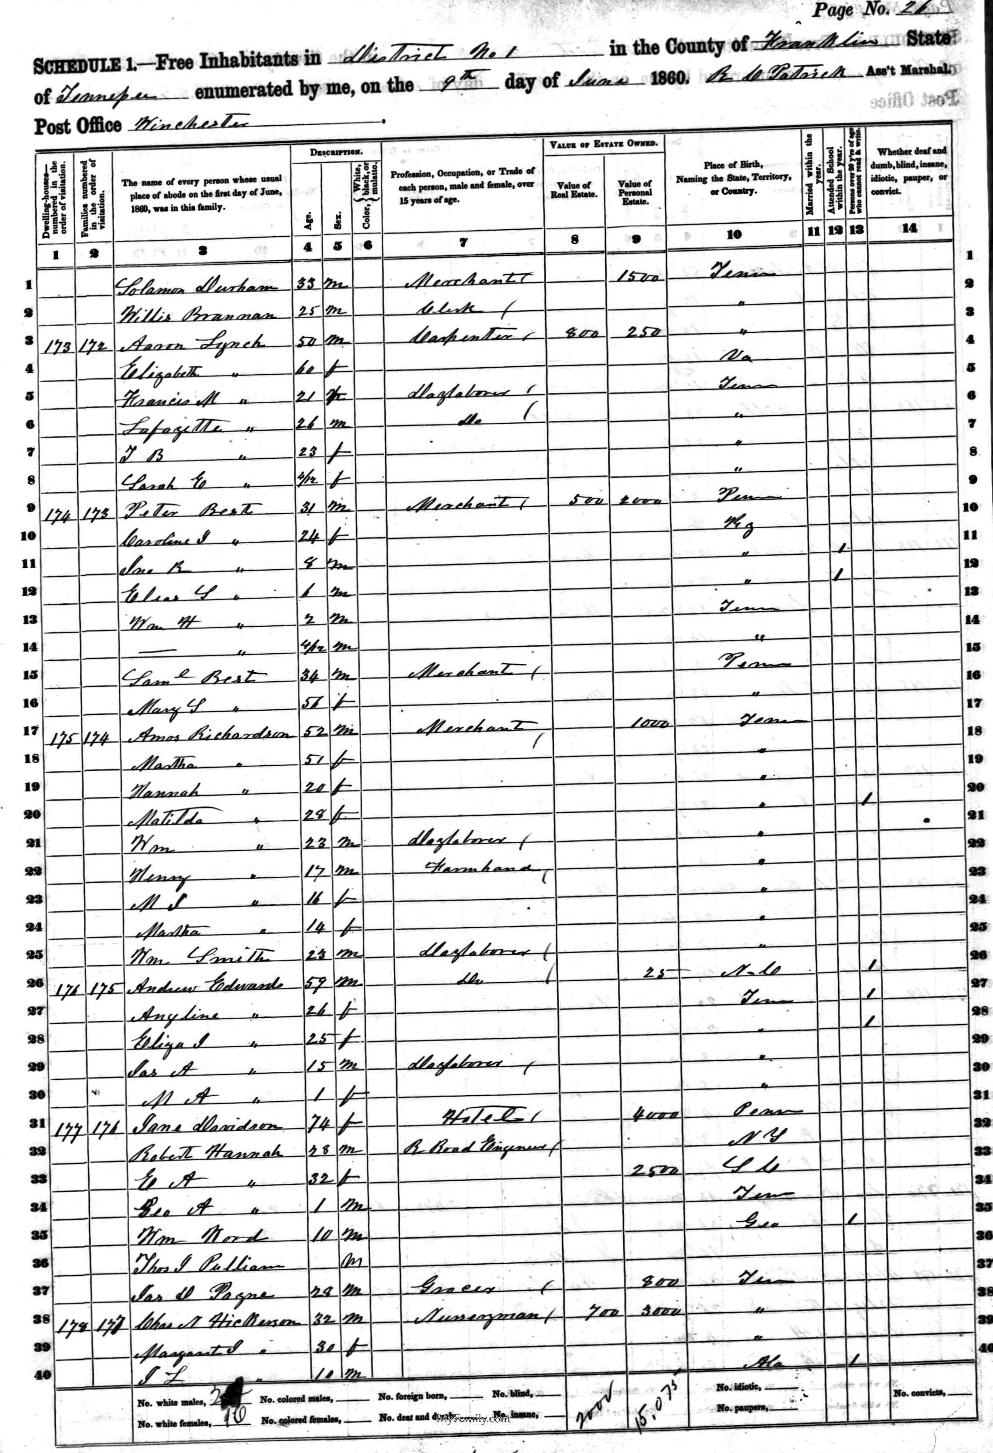 Page No. 26
SCHEDULE 1.—Free Inhabitants in District No 1 in the County of Franklin State
of Tennessee enumerated by me, on the 9th day of June 1860. Ass't Marshal.
Post Office Winchester
Dwelling-houses—numbered in the order of visitation. Families numbered in the order of visitation. The name of every person whose usual place of abode on the first day of June, 1860, was in this family. DESCRIPTION. Age. Sex. Color, White, black, or mulatto. Profession, Occupation, or Trade of each person, male and female, over 15 years of age. VALUE OF ESTATE OWNED. Value of Real Estate. Value of Personal Estate. Place of Birth, Naming the State, Territory, or Country. Married within the year. Attended School within the year. Persons over 20 y'rs of age who cannot read & write. Whether deaf and dumb, blind, insane, idiotic, pauper, or convict.
1 2 3 4 5 6 7 8 9 10 11 12 13 14
1 Solamon Durham 33 m Merchant 1500 Tenn 1
2 Willis Brannan 25 m Clerk " 2
3 173 172 Aaron Lynch 50 m Carpenter 800 250 " 3
4 Elizabeth " 60 f Va 4
5 Francis M " 21 Daylaborer Tenn 5
6 Lafayette " 26 m Do " 6
7 T B " 23 f " 7
8 Sarah E " 4/12 f " 8
9 174 173 Peter Best 31 m Merchant 500 2000 Penn 9
10 Caroline J " 24 f Ky 10
11 Jno R " 8 m " 1 11
12 Elias S " 6 m " 1 12
13 Wm H " 2 m Tenn 13
14 — " 4/12 m " 14
15 Saml Best 34 m Merchant Penn 15
16 Mary S " 56 f " 16
17 175 174 Amos Richardson 52 m Merchant 1000 Tenn 17
18 Martha " 51 f " 18
19 Hannah " 20 f " 19
20 Matilda " 28 f " 1 20
21 Wm " 23 m Daylaborer " 21
22 Henry " 17 m Farmhand " 22
23 M J " 16 f " 23
24 Martha " 14 f " 24
25 Wm Smith 23 m Daylaborer " 25
26 176 175 Andrew Edwards 59 m Do 25 N C 1 26
27 Angeline " 26 f Tenn 1 27
28 Eliza J " 25 f " 1 28
29 Jas A " 15 m Daylaborer " 29
30 M A " 1 f " 30
31 177 176 Jane Davidson 74 f Hotel 4000 Penn 31
32 Robert Hannah 28 m R Road Engineer N Y 32
33 E A " 32 f 2500 S C 33
34 Geo A " 1 m Tenn 34
35 Wm Word 10 m Geo 1 35
36 Thos J Pulliam m 36
37 Jas D Payne 28 m Grocer 800 Ten 37
38 178 177 Chas N Hickerson 32 m Nurseryman 700 3000 " 38
39 Margaret J " 30 f " 39
40 J L " 10 m Ala 1 40
No. white males, No. colored males, No. foreign born, No. blind, 2000 15,075 No. idiotic, No. convicts,
No. white females, 16 No. colored females, No. deaf and dumb, No. insane, No. paupers,